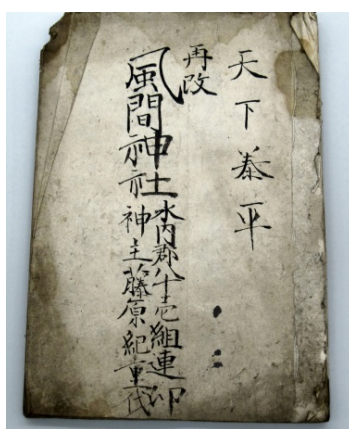 天下泰平
再改
風間神社
水内郡八十壱組連印
神主藤原紀重代